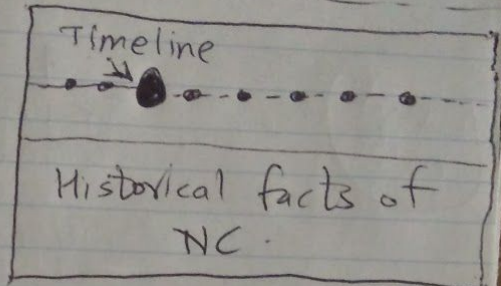 Timeline
Historical facts of
NC.